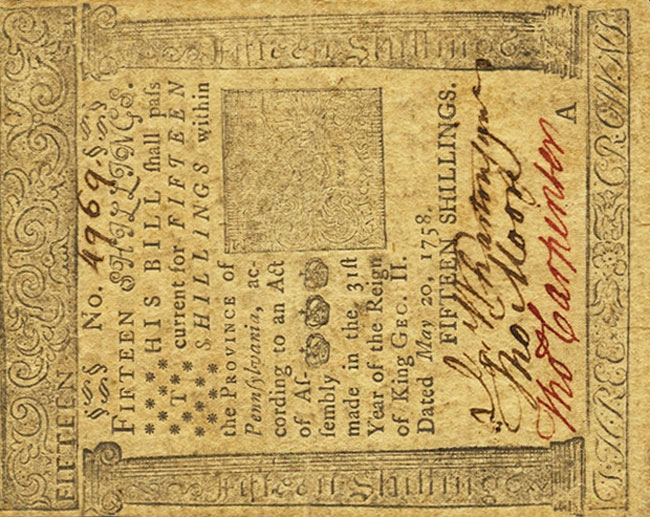 FIFTEEN
Fifteen Shillings
§§§ No. 4969. §§§
FIFTEEN SHILLINGS.
THIS BILL ſhall paſs
current for FIFTEEN
SHILLINGS within
the PROVINCE of
Pennſylvania, ac-
cording to an Act
of Aſ-
ſembly
made in the 31ſt
Year of the Reign
of King GEO. II.
Dated May 20, 1758.
FIFTEEN SHILLINGS.
Wharton
Tho Moore
Tho Carpenter
A
Fifteen Shillings
THREE CROWNS